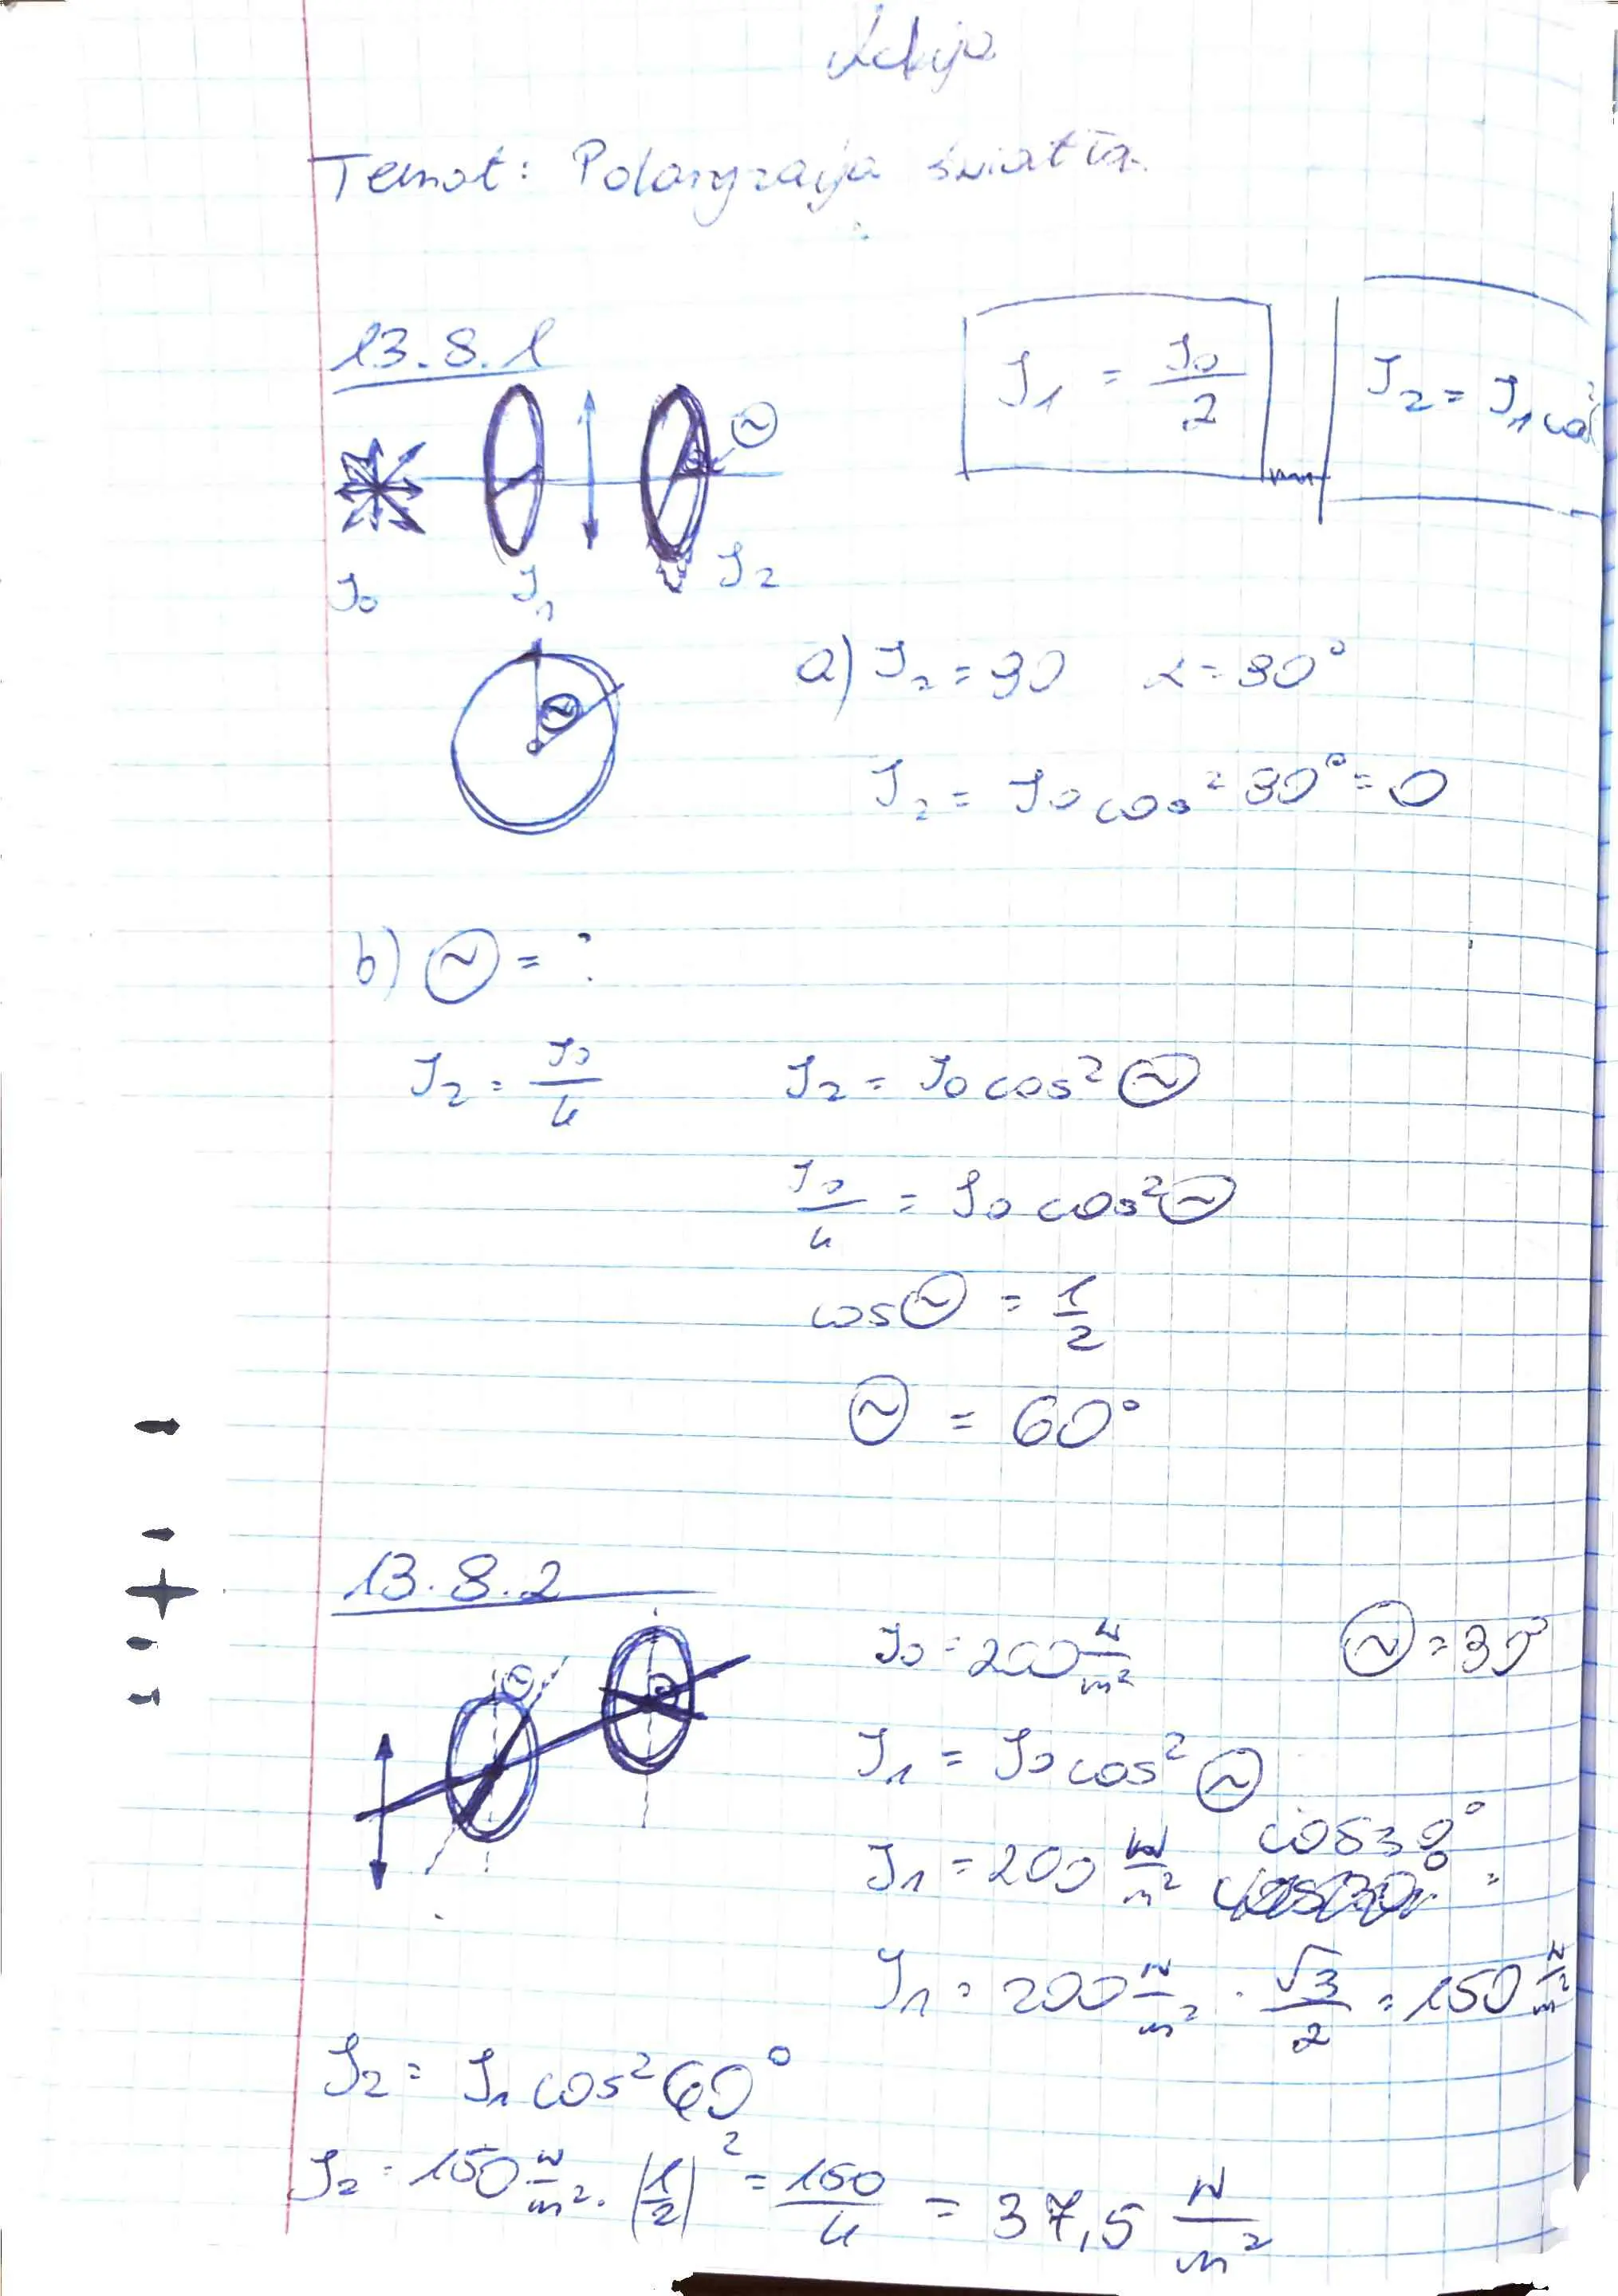 Lekcja
Temat: Polaryzacja światła.
13.8.1
J₁ = J₀/2
J₂ = J₁ cos²
Θ
J₀ J₁ J₂
Θ
a) J₂ = 90 α = 90°
J₂ = J₀ cos² 90° = 0
b) Θ = ?
J₂ = J₀/4 J₂ = J₀ cos² Θ
J₀/4 = J₀ cos² Θ
cos Θ = 1/2
Θ = 60°
13.8.2
J₀ = 200 W/m² Θ = 30°
Θ
J₁ = J₀ cos² Θ
J₁ = 200 W/m² cos 30° =
J₁ = 200 W/m² · √3/2 = 150 W/m²
J₂ = J₁ cos² 60°
J₂ = 150 W/m² · (1/2)² = 150/4 = 37,5 W/m²